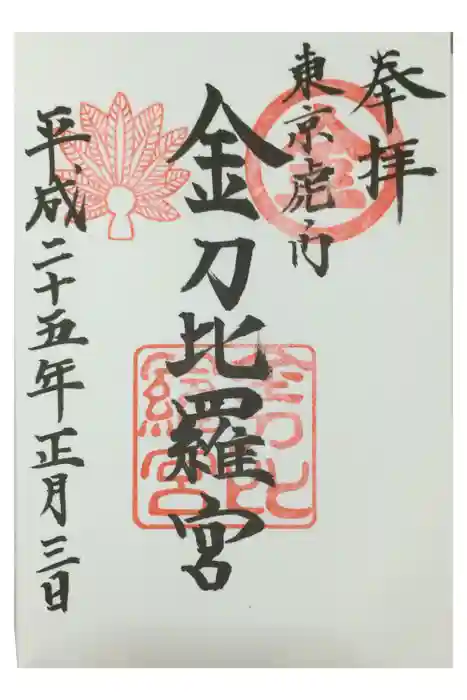 奉拝
東京虎ノ門
金
金刀比羅宮
平成二十五年正月三日